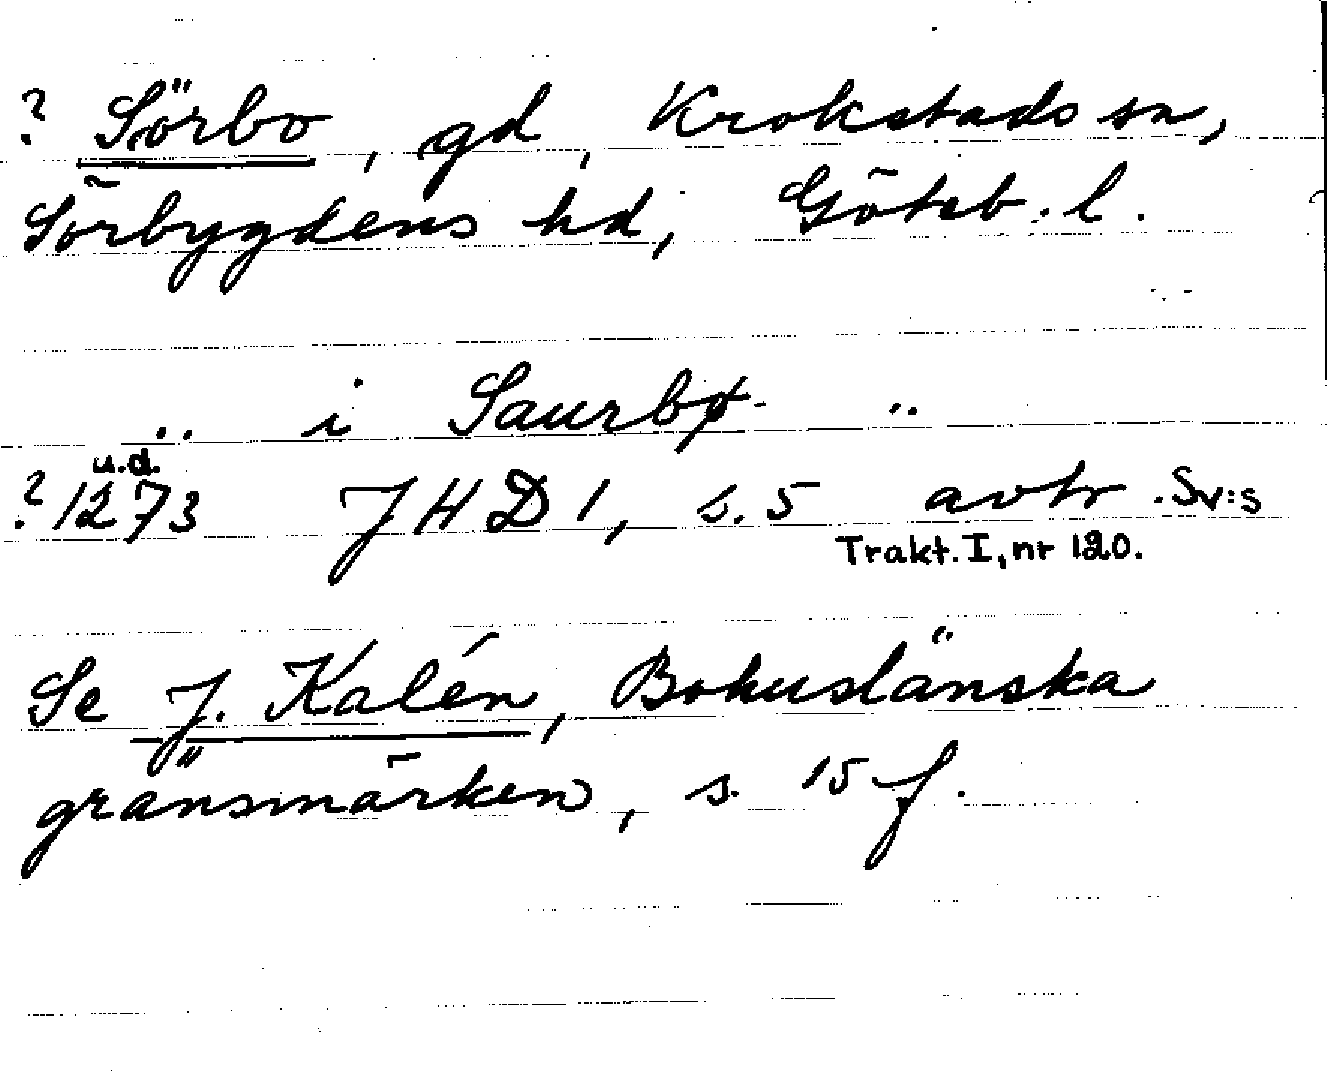 ? Sörbo, gd, Krokstads sn,
Sörbygdens hd, Göteb. l.
.. i Saurbø ..
u.d.
? 1273 JHD 1, s. 5 avtr. Sv:s
Trakt. I, nr 120.
Se J. Kalén, Bohuslänska
gränsmärken, s. 15 f.